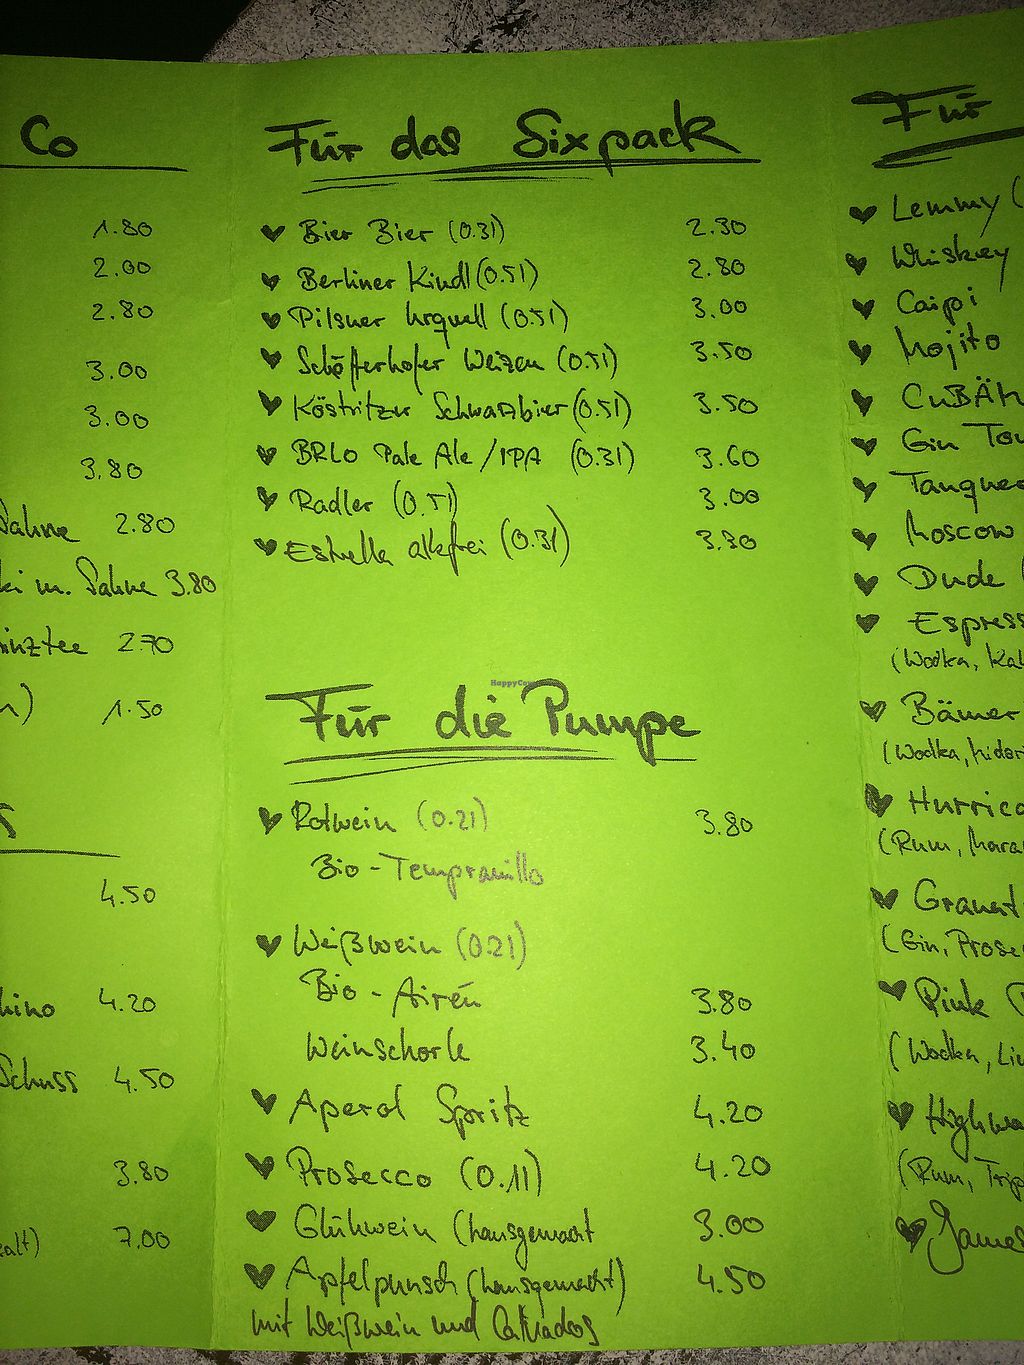 Co
1.80
2.00
2.80
3.00
3.00
3.80
Sahne 2.80
m. Sahne 3.80
2.70
1.50
4.50
4.20
Schuss 4.50
3.80
7.00
Für das Sixpack
Bier Bier (0.3l) 2.30
Berliner Kindl (0.5l) 2.80
Pilsner Urquell (0.5l) 3.00
Schöfferhofer Weizen (0.5l) 3.50
Köstritzer Schwarzbier (0.5l) 3.50
BRLO Pale Ale / IPA (0.3l) 3.60
Radler (0.5l) 3.00
Estrella alkfrei (0.3l) 3.30
HappyCow
Für die Pumpe
Rotwein (0.2l) 3.80
Bio - Tempranillo
Weißwein (0.2l)
Bio - Airén 3.80
Weinschorle 3.40
Aperol Spritz 4.20
Prosecco (0.1l) 4.20
Glühwein (hausgemacht 3.00
Apfelpunsch (hausgemacht) 4.50
mit Weißwein und Calvados
Für
Lemmy (
Whiskey
Caipi
Mojito
CuBÄH
Gin Ton
Tanquer
Moscow
Dude (
Espress
(Wodka, Kah
Bämer
(Wodka, Midor
Hurrica
(Rum, Mara
Granat
(Gin, Prose
Pink
(Wodka, Lim
Highwa
(Rum, Trip
James